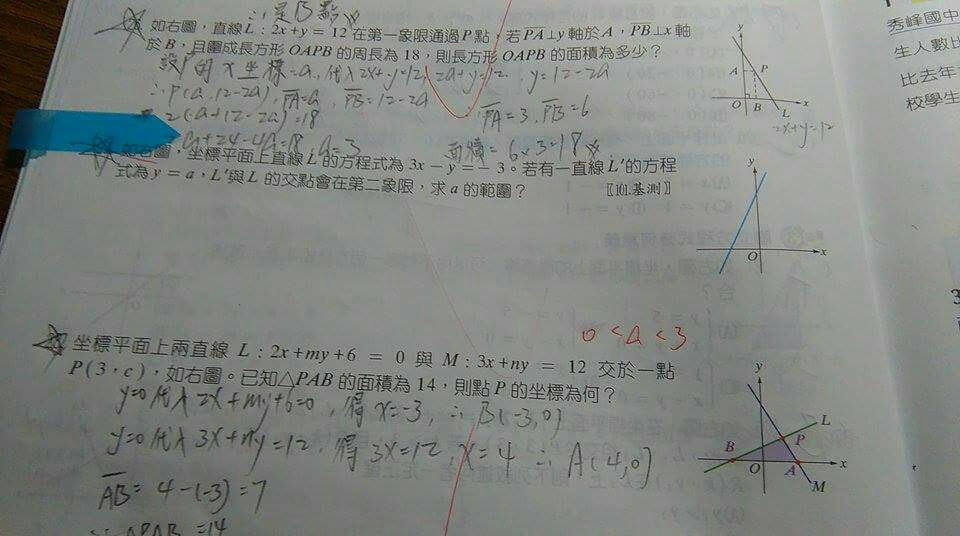 ∴是B點
如右圖，直線 L：2x+y = 12 在第一象限通過 P 點，若 PA⊥y 軸於 A，PB⊥x 軸
於 B，且圍成長方形 OAPB 的周長為 18，則長方形 OAPB 的面積為多少？
設P的 x 坐標=a，代入2x+y=12，2a+y=12，y=12-2a
∴P(a,12-2a)，PA=a，PB=12-2a
2(a+12-2a)=18
PA=3，PB=6
2a+24-4a=18，a=3
面積=6×3=18
y
A
P
O
B
x
L
2x+y=12
如右圖，坐標平面上直線 L 的方程式為 3x－y =－3。若有一直線 L′的方程
式為 y = a，L′與 L 的交點會在第二象限，求 a 的範圍？
〖101.基測〗
y
O
x
0<a<3
坐標平面上兩直線 L：2x+my+6 = 0 與 M：3x+ny = 12 交於一點
P(3，c)，如右圖。已知△PAB 的面積為 14，則點 P 的坐標為何？
y=0代入2x+my+6=0，得x=-3，∴B(-3,0)
y=0代入3x+ny=12，得3x=12，x=4 ∴A(4,0)
AB=4-(-3)=7
∵△PAB=14
y
L
P
B
O
A
x
M
秀峰國中
生人數比
比去年
校學生